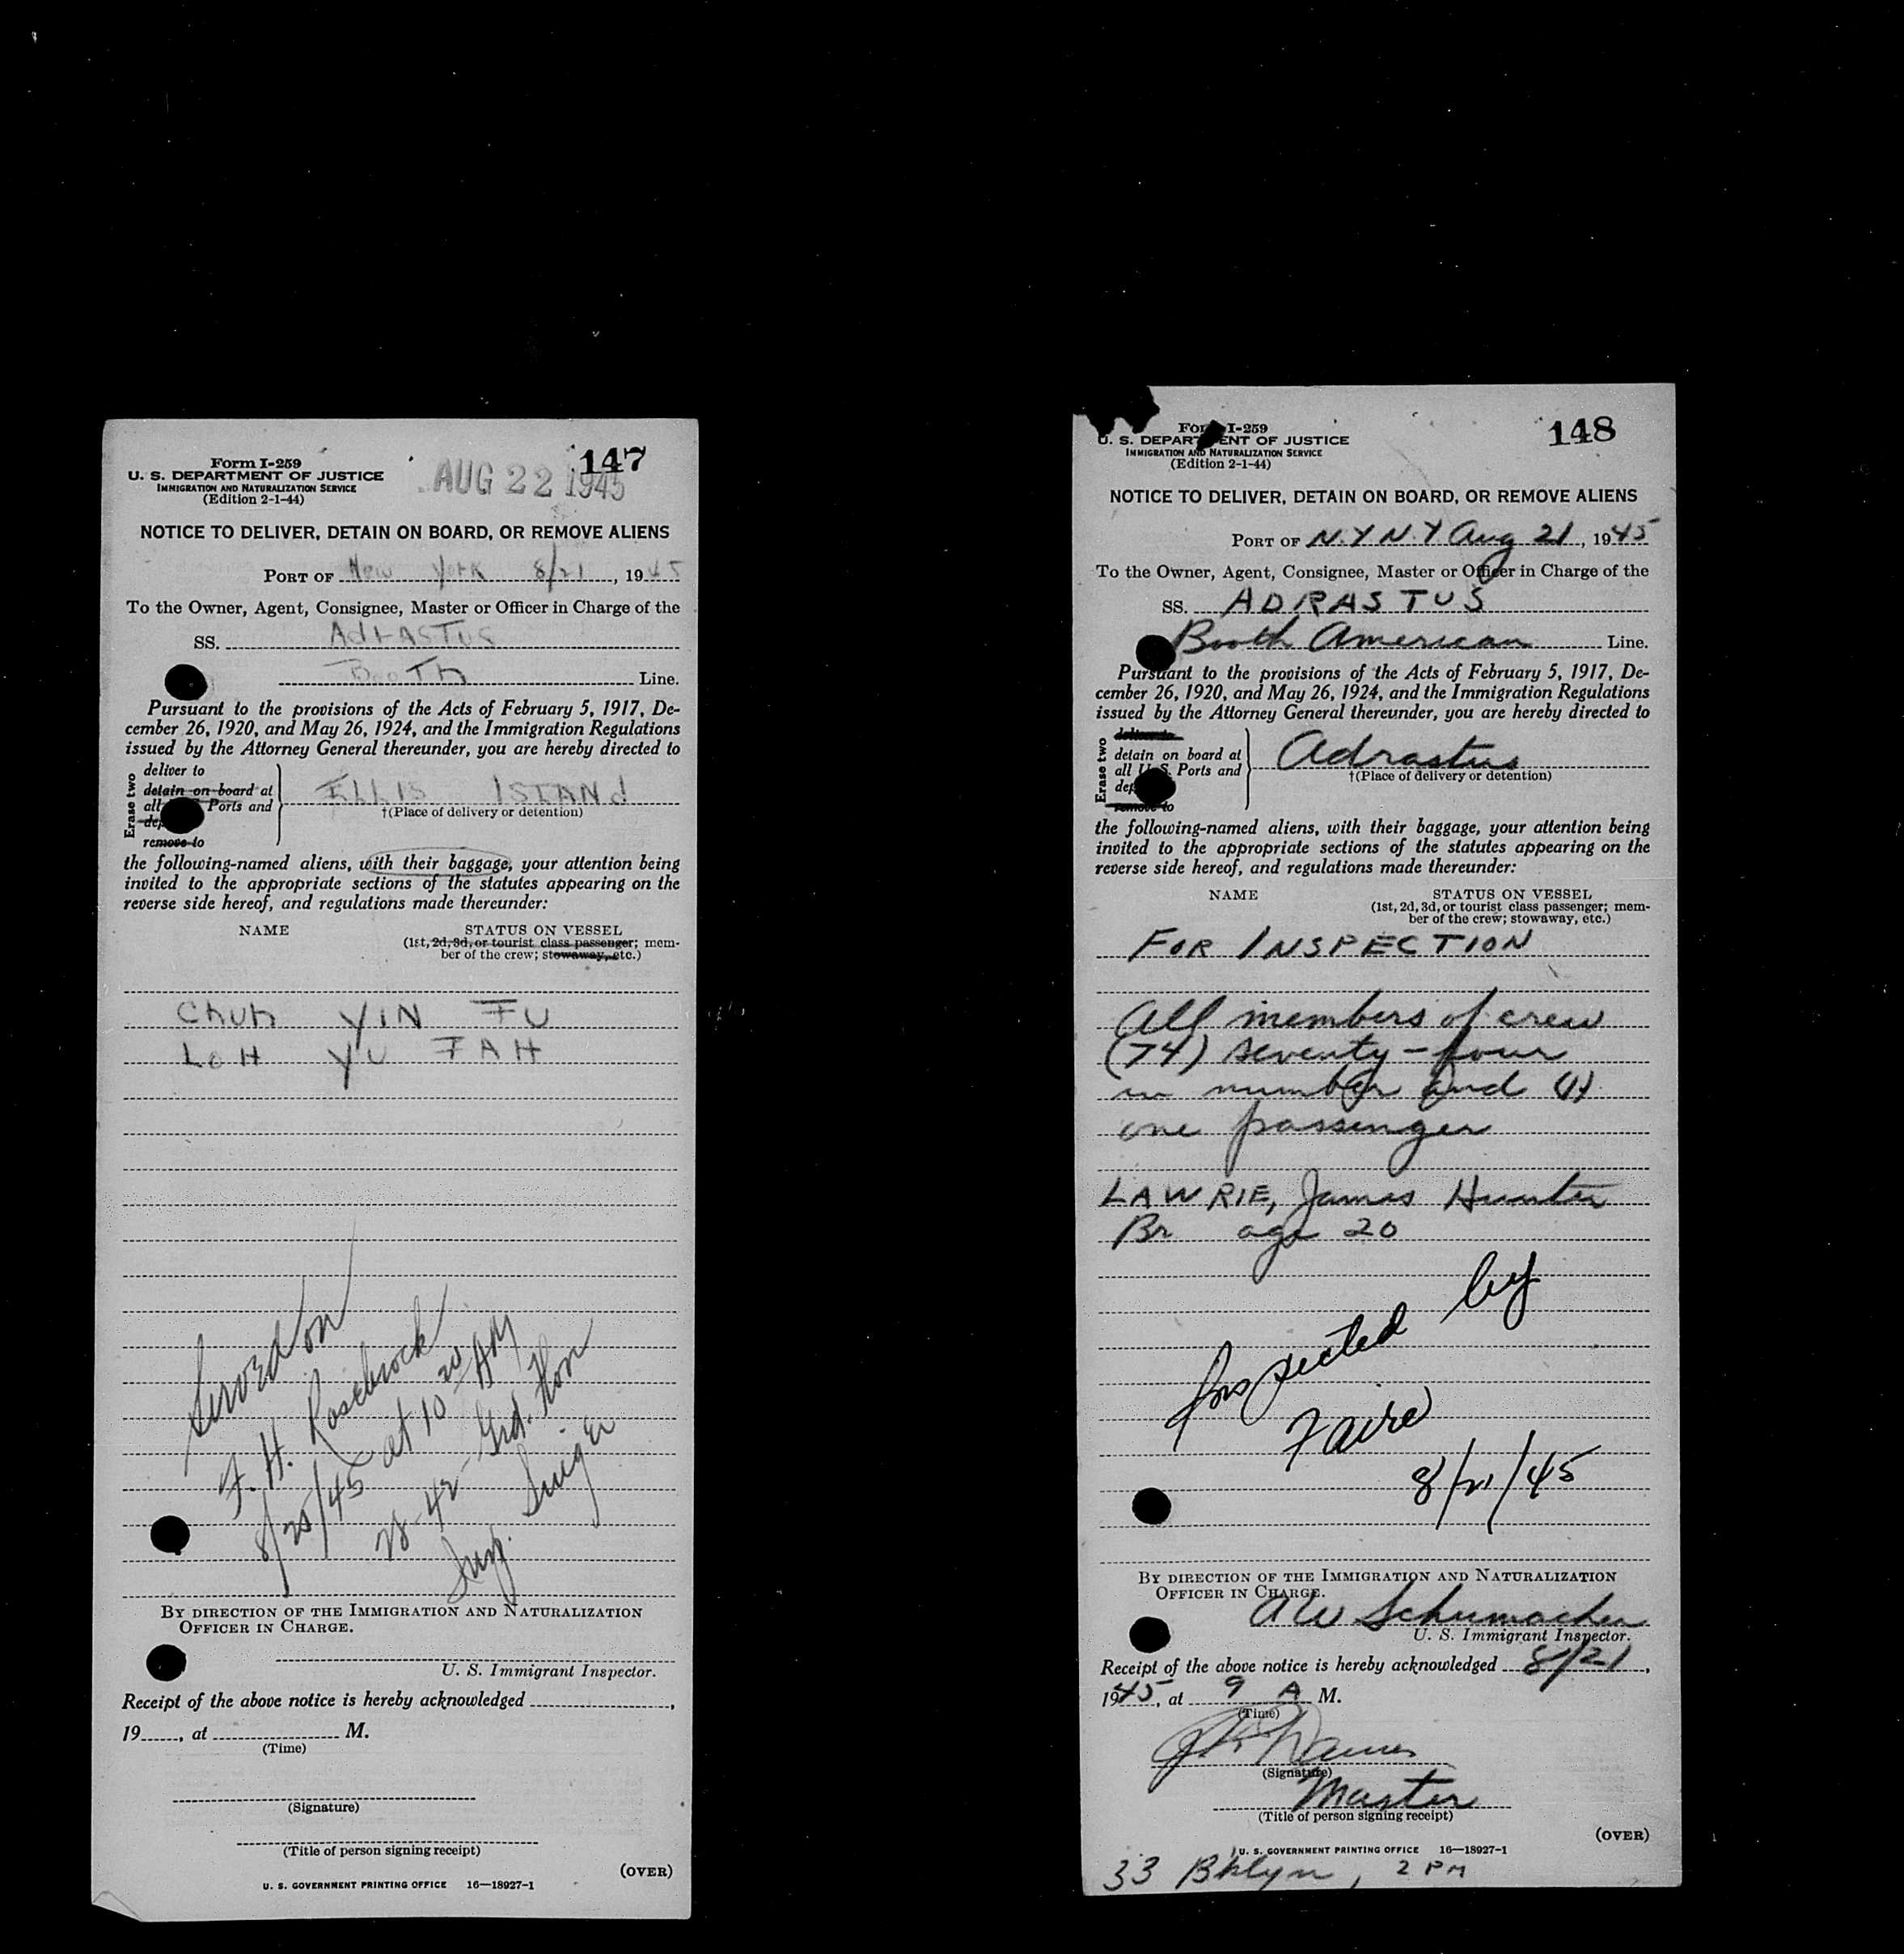 Form I-259
147
U. S. DEPARTMENT OF JUSTICE
AUG 22 1945
IMMIGRATION AND NATURALIZATION SERVICE
(Edition 2-1-44)
NOTICE TO DELIVER, DETAIN ON BOARD, OR REMOVE ALIENS
PORT OF New York 8/21, 1945
To the Owner, Agent, Consignee, Master or Officer in Charge of the
SS. AdrASTUS
BooTh Line.
Pursuant to the provisions of the Acts of February 5, 1917, De-
cember 26, 1920, and May 26, 1924, and the Immigration Regulations
issued by the Attorney General thereunder, you are hereby directed to
Erase two
deliver to
detain on board at
all Ports and
remove to
ELLIS ISLANd
†(Place of delivery or detention)
the following-named aliens, with their baggage, your attention being
invited to the appropriate sections of the statutes appearing on the
reverse side hereof, and regulations made thereunder:
NAME STATUS ON VESSEL
(1st, 2d, 3d, or tourist class passenger; mem-
ber of the crew; stowaway, etc.)
Chuh YIN FU
LOH YU FAH
Served on
F. H. Rosebrock
8/25/45 at 10 20 AM
28-42 Grd. Hon
Insp. Singer
BY DIRECTION OF THE IMMIGRATION AND NATURALIZATION
OFFICER IN CHARGE.
U. S. Immigrant Inspector.
Receipt of the above notice is hereby acknowledged ,
19 , at M.
(Time)
(Signature)
(Title of person signing receipt)
(OVER)
U. S. GOVERNMENT PRINTING OFFICE 16—18927-1
Form I-259
148
U. S. DEPARTMENT OF JUSTICE
IMMIGRATION AND NATURALIZATION SERVICE
(Edition 2-1-44)
NOTICE TO DELIVER, DETAIN ON BOARD, OR REMOVE ALIENS
PORT OF N.Y N.Y Aug 21, 1945
To the Owner, Agent, Consignee, Master or Officer in Charge of the
SS. ADRASTUS
Booth American Line.
Pursuant to the provisions of the Acts of February 5, 1917, De-
cember 26, 1920, and May 26, 1924, and the Immigration Regulations
issued by the Attorney General thereunder, you are hereby directed to
Erase two
deliver to
detain on board at
all U. S. Ports and
remove to
Adrastus
†(Place of delivery or detention)
the following-named aliens, with their baggage, your attention being
invited to the appropriate sections of the statutes appearing on the
reverse side hereof, and regulations made thereunder:
NAME STATUS ON VESSEL
(1st, 2d, 3d, or tourist class passenger; mem-
ber of the crew; stowaway, etc.)
FOR INSPECTION
All members of crew
(74) seventy-four
in number and (1)
one passenger
LAWRIE, James Hunter
Br age 20
Inspected by
Faire
8/21/45
BY DIRECTION OF THE IMMIGRATION AND NATURALIZATION
OFFICER IN CHARGE.
A W Schumacher
U. S. Immigrant Inspector.
Receipt of the above notice is hereby acknowledged 8/21,
1945, at 9 A M.
(Time)
(Signature)
Master
(Title of person signing receipt)
(OVER)
U. S. GOVERNMENT PRINTING OFFICE 16—18927-1
33 Bklyn, 2 PM